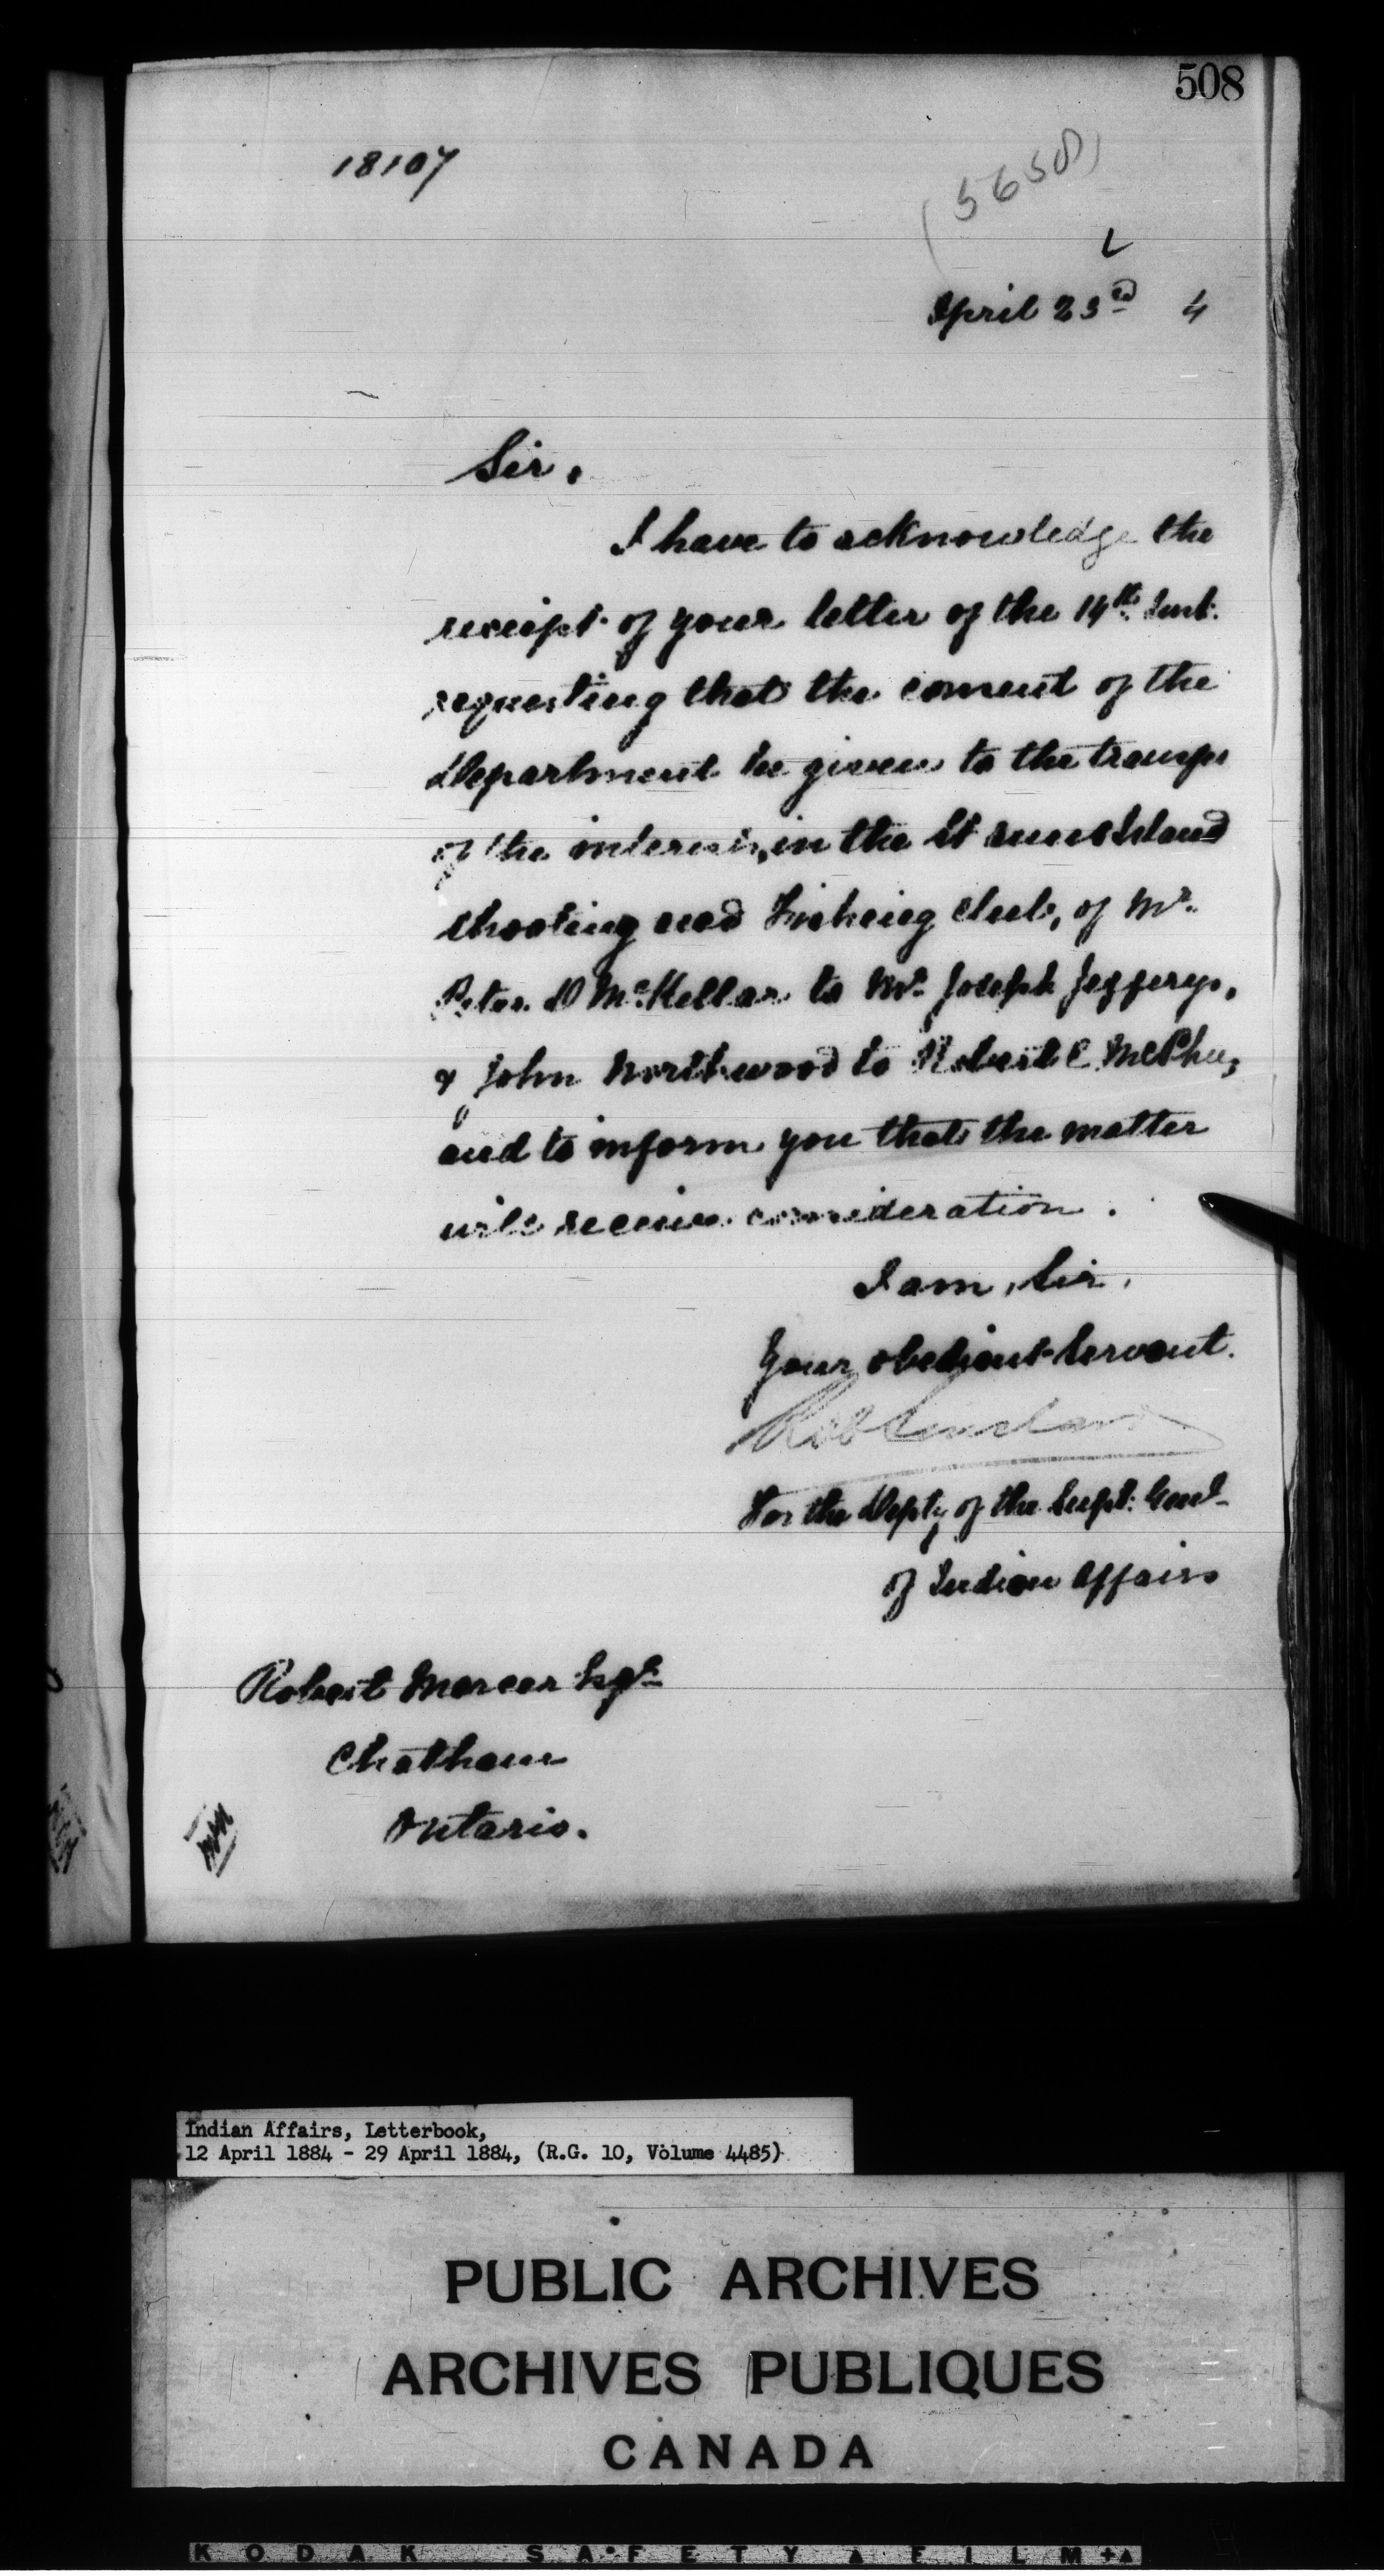 508
18107
(5658)
April 23rd 4
Sir,
I have to acknowledge the
receipt of your letter of the 14th Inst.
requesting that the consent of the
Department be given to the transfer
of the interests, in the St Annes Island
Shooting and Fishing Club, of Mr.
Peter D McKellar to Mr. Joseph Jefferys,
& John Northwood to Robert C. McPhee,
and to inform you that the matter
will receive consideration.
I am, Sir,
Your obedient Servant.
For the Depty of the Supt. Genl
of Indian Affairs
Robert Mercer Esqre
Chatham
Ontario.
Indian Affairs, Letterbook,
12 April 1884 - 29 April 1884, (R.G. 10, Volume 4485)
PUBLIC ARCHIVES
ARCHIVES PUBLIQUES
CANADA
KODAK SAFETY FILM